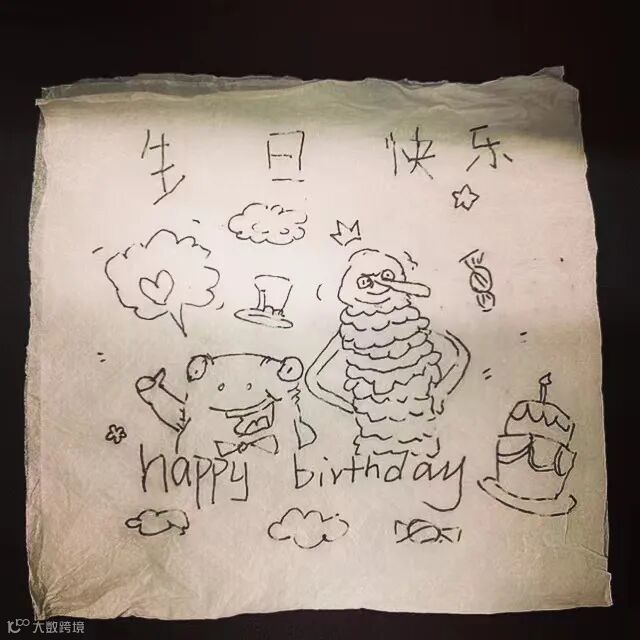 生日快乐
happy birthday
大数跨境